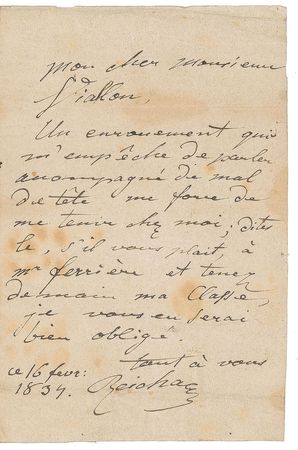 mon cher monsieur
Viallon,
Un enrouement qui
m'empêche de parler
accompagné de mal
de tête me force de
me tenir chez moi; dites
le, s'il vous plait, à
mr ferrière et tenez
demain ma Classe,
je vous en serai
bien obligé.
tout à vous
ce 16 fevr: Reicha
1834.